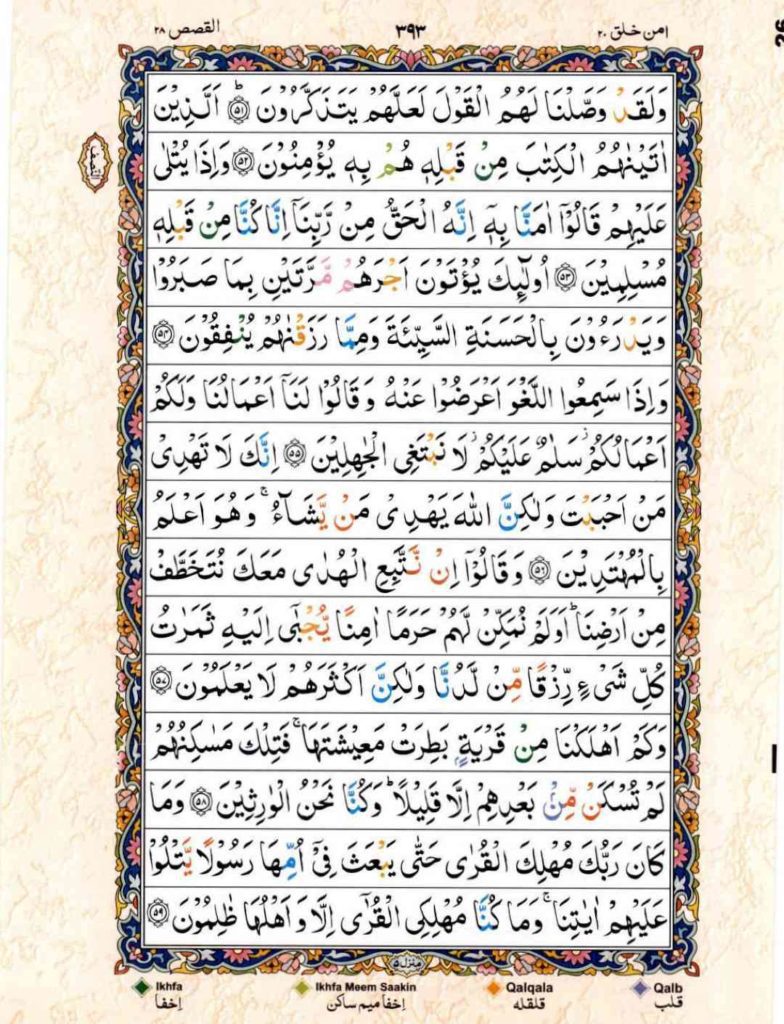 امن خلق ۲۰ ۳۹۳ القصص ۲۸
وَلَقَدْ وَصَّلْنَا لَهُمُ الْقَوْلَ لَعَلَّهُمْ يَتَذَكَّرُوْنَ ؕ﴿۵۱﴾ اَلَّذِيْنَ
اٰتَيْنٰهُمُ الْكِتٰبَ مِنْ قَبْلِهٖ هُمْ بِهٖ يُؤْمِنُوْنَ ﴿۵۲﴾ وَاِذَا يُتْلٰى
النصف
عَلَيْهِمْ قَالُوْۤا اٰمَنَّا بِهٖۤ اِنَّهُ الْحَقُّ مِنْ رَّبِّنَاۤ اِنَّا كُنَّا مِنْ قَبْلِهٖ
مُسْلِمِيْنَ ﴿۵۳﴾ اُولٰٓئِكَ يُؤْتَوْنَ اَجْرَهُمْ مَّرَّتَيْنِ بِمَا صَبَرُوْا
وَيَدْرَءُوْنَ بِالْحَسَنَةِ السَّيِّئَةَ وَمِمَّا رَزَقْنٰهُمْ يُنْفِقُوْنَ ﴿۵۴﴾
وَاِذَا سَمِعُوا اللَّغْوَ اَعْرَضُوْا عَنْهُ وَقَالُوْا لَنَاۤ اَعْمَالُنَا وَلَكُمْ
اَعْمَالُكُمْ ؗ سَلٰمٌ عَلَيْكُمْ ؗ لَا نَبْتَغِى الْجٰهِلِيْنَ ﴿۵۵﴾ اِنَّكَ لَا تَهْدِىْ
مَنْ اَحْبَبْتَ وَلٰكِنَّ اللّٰهَ يَهْدِىْ مَنْ يَّشَآءُ ۚ وَهُوَ اَعْلَمُ
بِالْمُهْتَدِيْنَ ﴿۵۶﴾ وَقَالُوْۤا اِنْ نَّتَّبِعِ الْهُدٰى مَعَكَ نُتَخَطَّفْ
مِنْ اَرْضِنَا ؕ اَوَلَمْ نُمَكِّنْ لَّهُمْ حَرَمًا اٰمِنًا يُّجْبٰٓى اِلَيْهِ ثَمَرٰتُ
كُلِّ شَىْءٍ رِّزْقًا مِّنْ لَّدُنَّا وَلٰكِنَّ اَكْثَرَهُمْ لَا يَعْلَمُوْنَ ﴿۵۷﴾
وَكَمْ اَهْلَكْنَا مِنْ قَرْيَةٍۭ بَطِرَتْ مَعِيْشَتَهَا ۚ فَتِلْكَ مَسٰكِنُهُمْ
لَمْ تُسْكَنْ مِّنْۢ بَعْدِهِمْ اِلَّا قَلِيْلًا ؕ وَكُنَّا نَحْنُ الْوٰرِثِيْنَ ﴿۵۸﴾ وَمَا
كَانَ رَبُّكَ مُهْلِكَ الْقُرٰى حَتّٰى يَبْعَثَ فِىْۤ اُمِّهَا رَسُوْلًا يَّتْلُوْا
عَلَيْهِمْ اٰيٰتِنَا ۚ وَمَا كُنَّا مُهْلِكِى الْقُرٰٓى اِلَّا وَاَهْلُهَا ظٰلِمُوْنَ ﴿۵۹﴾
منزل ۵
Ikhfa Ikhfa Meem Saakin Qalqala Qalb
إخفا إخفا ميم ساكن قلقله قلب